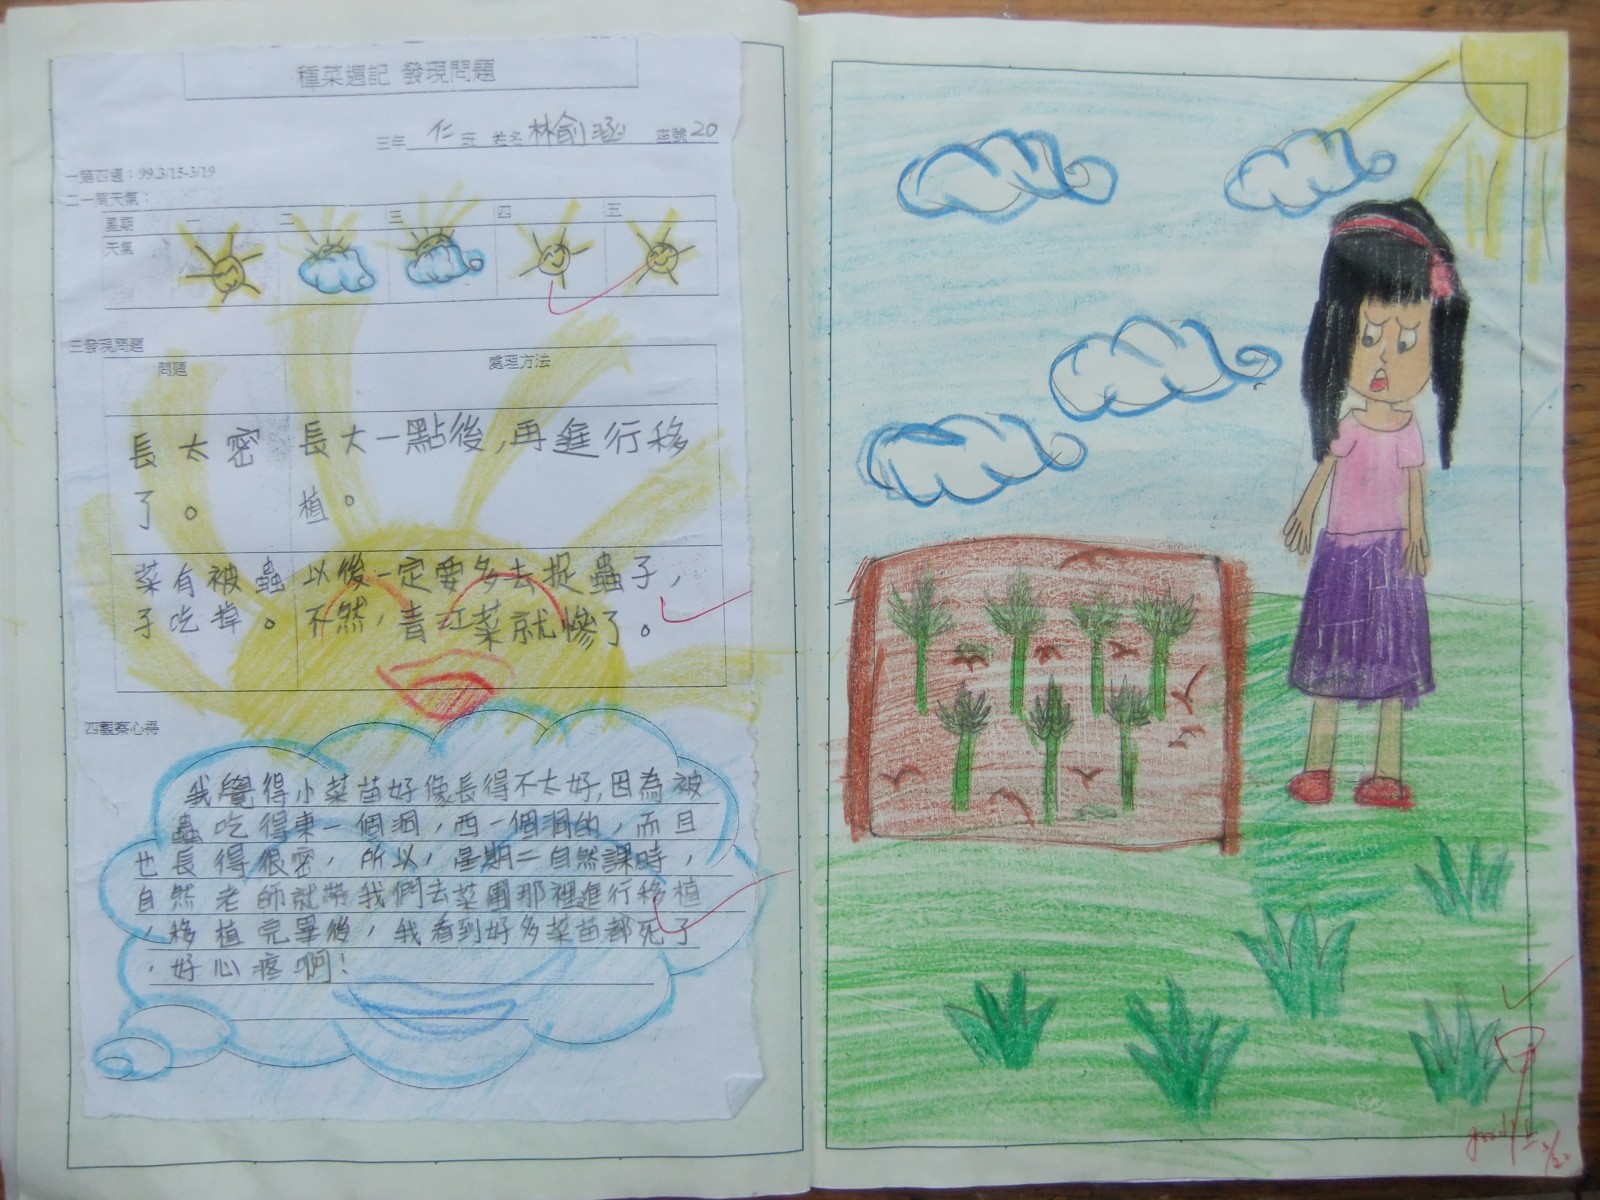 種菜週記 發現問題
三年 仁 班 姓名 林俞涵 座號 20
一第四週：99.3/15-3/19
二一周天氣：
星期 一 二 三 四 五
天氣
三發現問題
問題 處理方法
長太密 長大一點後,再進行移
了。 植。
菜有被蟲 以後一定要多去捉蟲子，
子吃掉。 不然，青江菜就慘了。
四觀察心得
我覺得小菜苗好像長得不太好,因為被
蟲吃得東一個洞，西一個洞的，而且
也長得很密，所以，星期二自然課時，
自然老師就帶我們去菜園那裡進行移植
，移植完畢後，我看到好多菜苗都死了
，好心疼啊！
甲
good
3/22